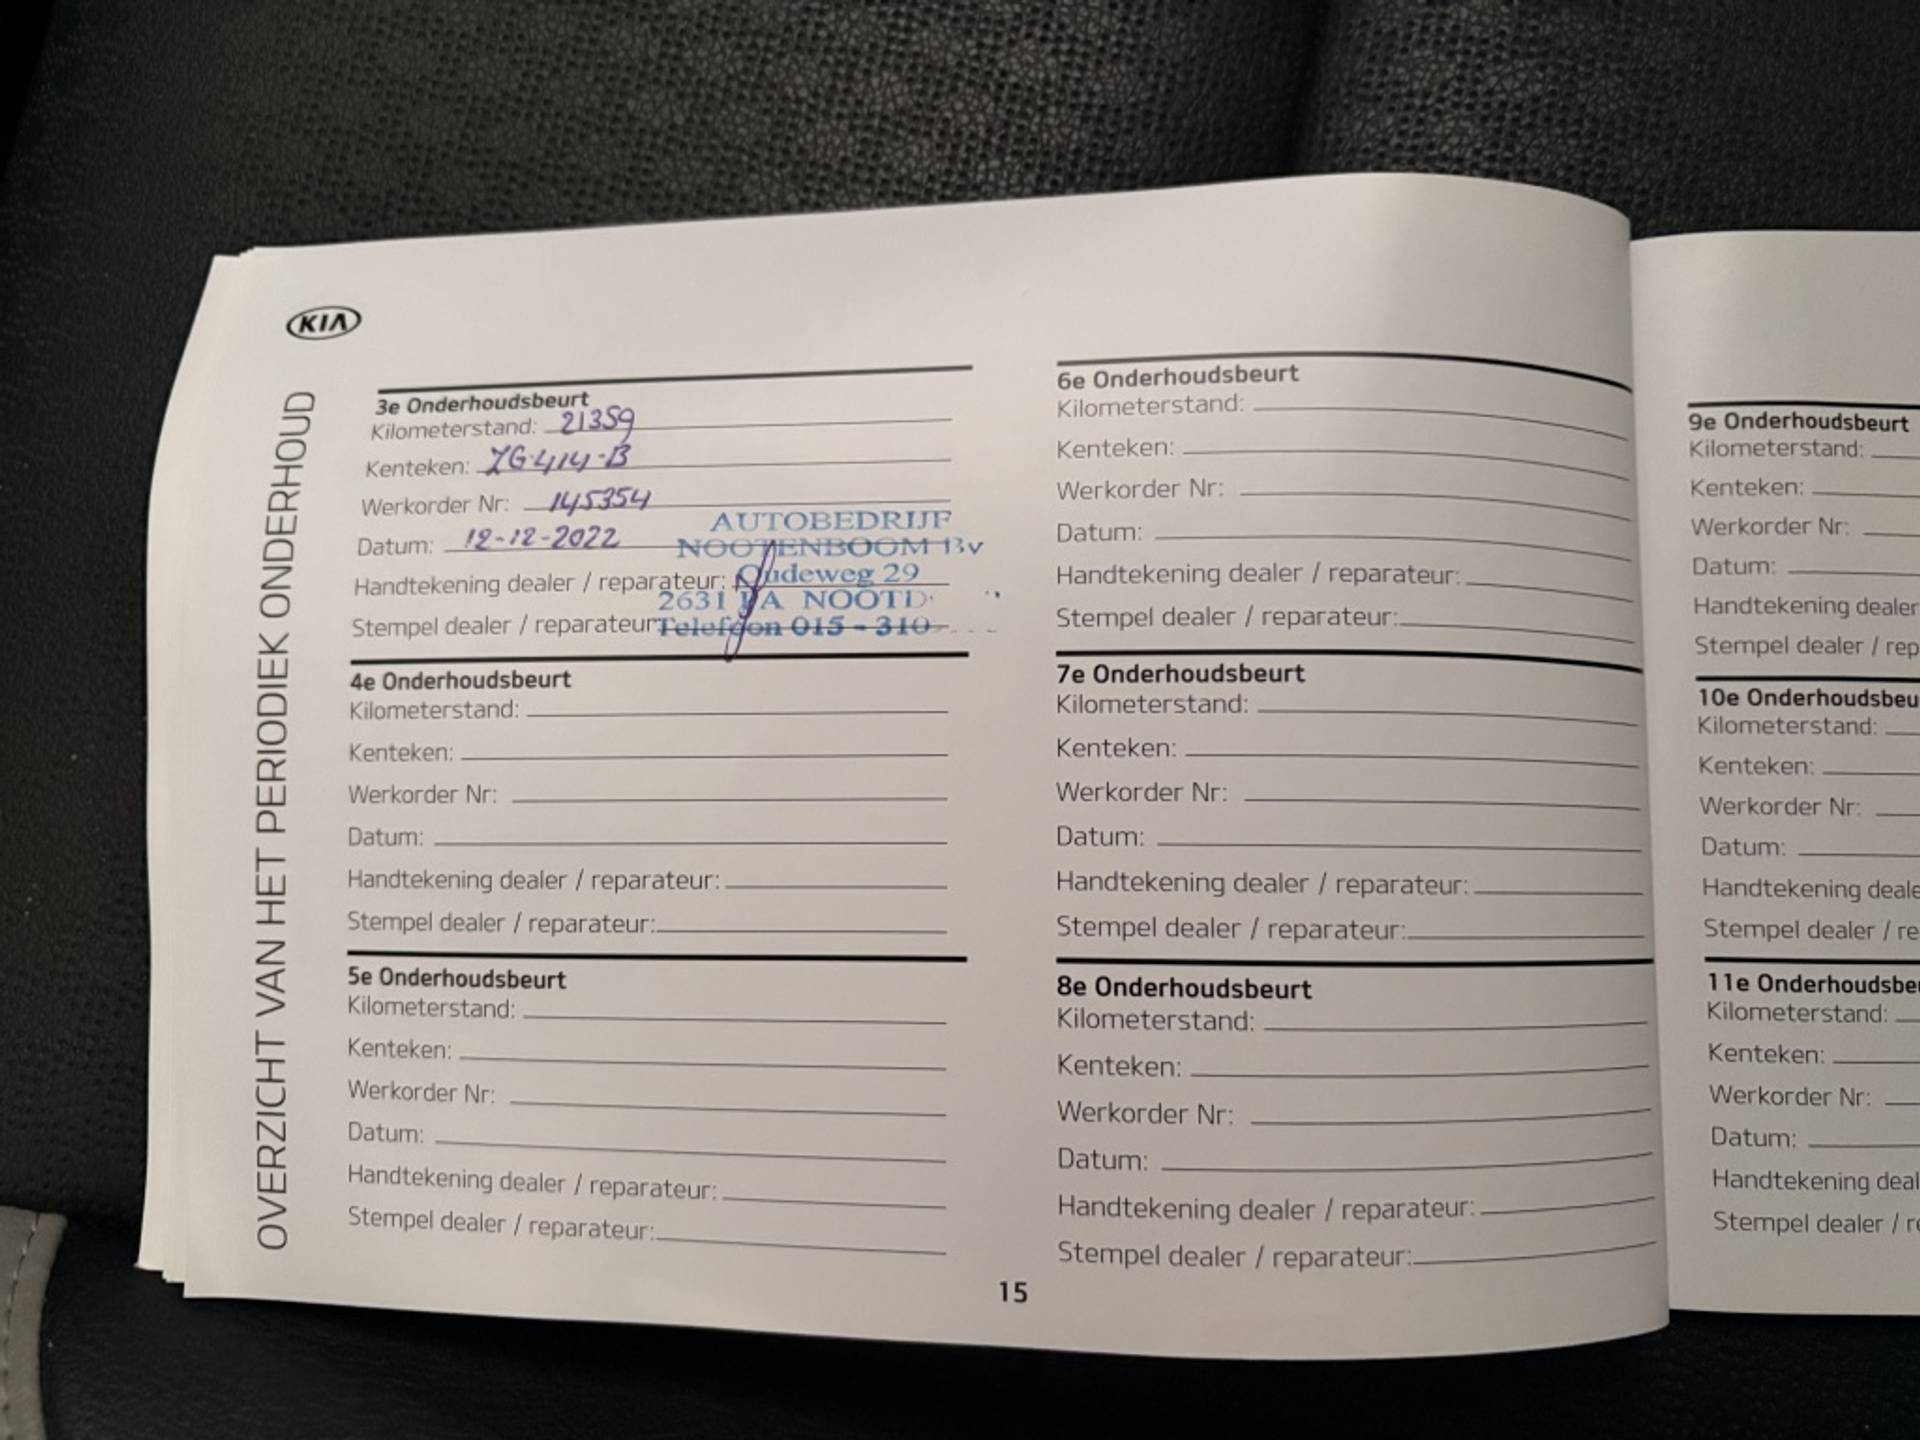 KIA
OVERZICHT VAN HET PERIODIEK ONDERHOUD
3e Onderhoudsbeurt
Kilometerstand: 21359
Kenteken: ZG-414-B
Werkorder Nr: 145354
Datum: 12-12-2022
Handtekening dealer / reparateur:
Stempel dealer / reparateur
AUTOBEDRIJF
NOOTENBOOM BV
Oudeweg 29
2631 PA NOOTD
Telefoon 015 - 310
4e Onderhoudsbeurt
Kilometerstand:
Kenteken:
Werkorder Nr:
Datum:
Handtekening dealer / reparateur:
Stempel dealer / reparateur:
5e Onderhoudsbeurt
Kilometerstand:
Kenteken:
Werkorder Nr:
Datum:
Handtekening dealer / reparateur:
Stempel dealer / reparateur:
6e Onderhoudsbeurt
Kilometerstand:
Kenteken:
Werkorder Nr:
Datum:
Handtekening dealer / reparateur:
Stempel dealer / reparateur:
7e Onderhoudsbeurt
Kilometerstand:
Kenteken:
Werkorder Nr:
Datum:
Handtekening dealer / reparateur:
Stempel dealer / reparateur:
8e Onderhoudsbeurt
Kilometerstand:
Kenteken:
Werkorder Nr:
Datum:
Handtekening dealer / reparateur:
Stempel dealer / reparateur:
15
9e Onderhoudsbeurt
Kilometerstand:
Kenteken:
Werkorder Nr:
Datum:
Handtekening dealer
Stempel dealer / rep
10e Onderhoudsbeu
Kilometerstand:
Kenteken:
Werkorder Nr:
Datum:
Handtekening deale
Stempel dealer / re
11e Onderhoudsbe
Kilometerstand:
Kenteken:
Werkorder Nr:
Datum:
Handtekening deal
Stempel dealer / r